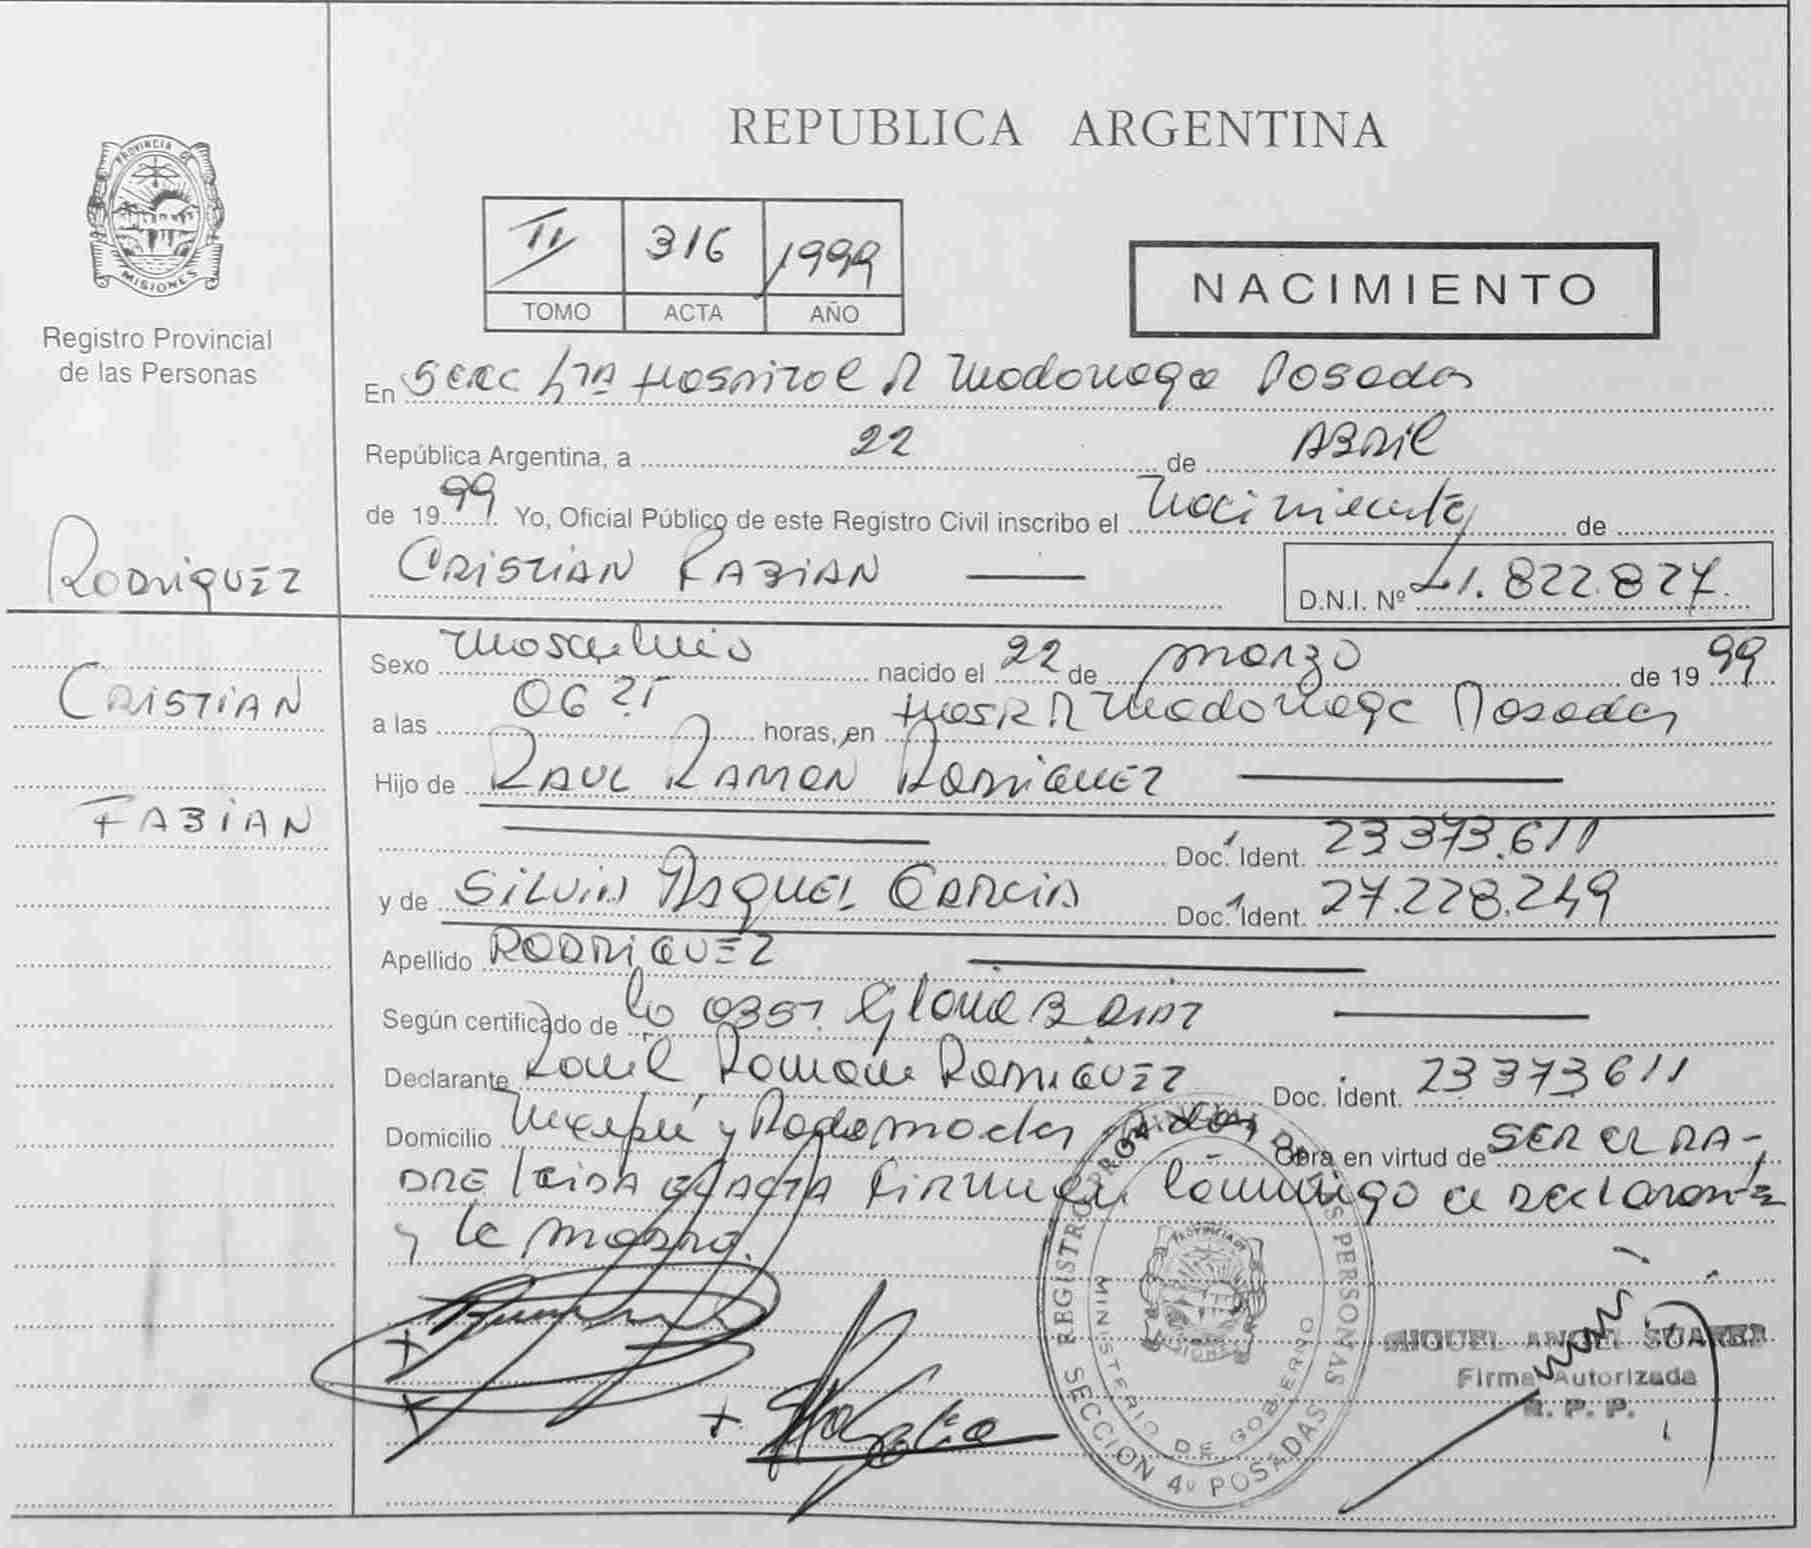 PROVINCIA DE
MISIONES
Registro Provincial
de las Personas
RODRIGUEZ
CRISTIAN
FABIAN
REPUBLICA ARGENTINA
II 316 1999
TOMO ACTA AÑO
NACIMIENTO
En Secc 4ta Hospital R Madariaga Posadas
República Argentina, a 22 de ABRIL
de 1999 Yo, Oficial Público de este Registro Civil inscribo el Nacimiento de
CRISTIAN FABIAN D.N.I. Nº 41.822.827.
Sexo Masculino nacido el 22 de marzo de 1999
a las 06 horas, en Hosp R Madariaga Posadas
Hijo de RAUL RAMON RODRIGUEZ
Doc. Ident. 23 373.611
y de SILVIA RAQUEL GARCIA Doc. Ident. 27.228.249
Apellido RODRIGUEZ
Según certificado de la OBST. Gloria B
Declarante Raul Ramon RODRIGUEZ Doc. ident. 23 373 611
Domicilio y Obra en virtud de SER EL PA-
DRE leida el ACTA FIRMAN conmigo el declarante
y la madre.
REGISTRO PROVINCIAL DE LAS PERSONAS
MINISTERIO DE GOBIERNO
PROVINCIA DE
MISIONES
SECCION 4º POSADAS
MIGUEL ANGEL SUAREZ
Firma Autorizada
R. P. P.